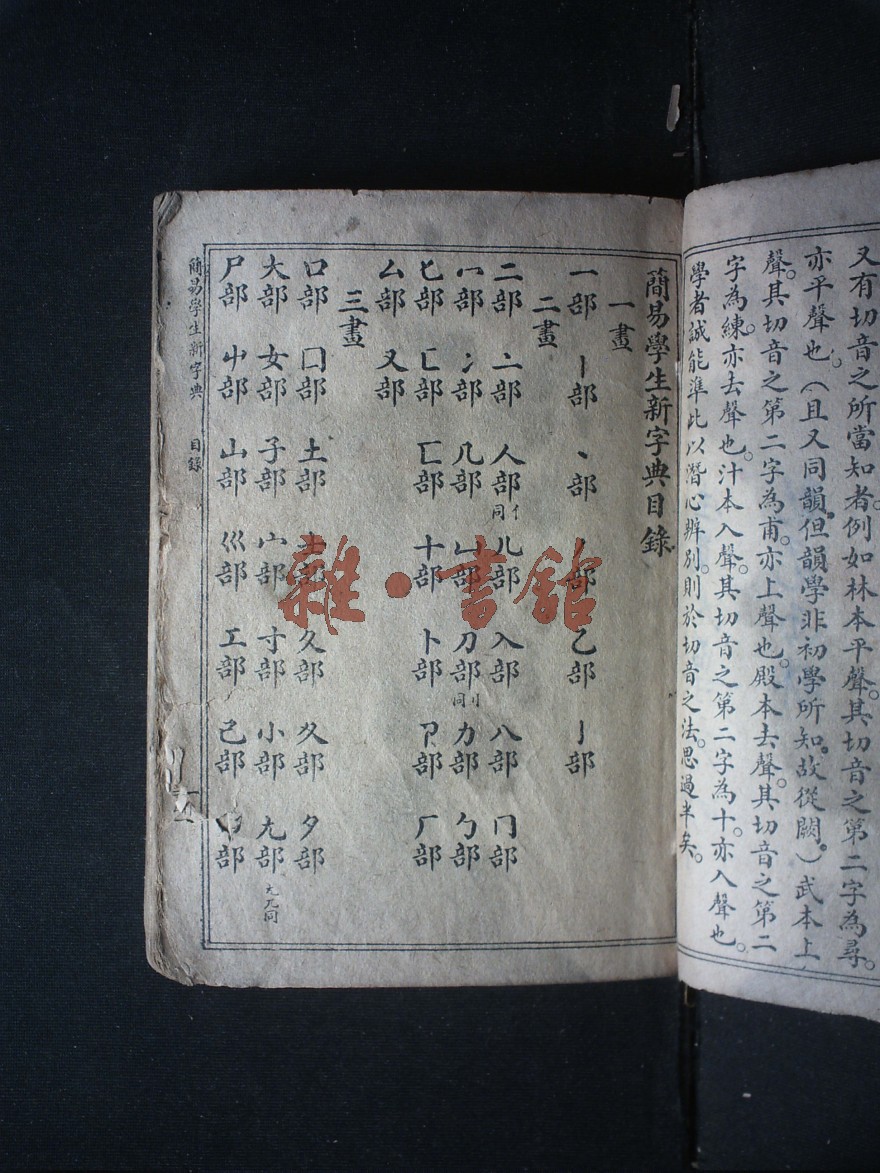 又有切音之所當知者。例如林本平聲。其切音之第二字為尋。
亦平聲也。(且又同韻。但韻學非初學所知。故從闕。)武本上
聲。其切音之第二字為甫。亦上聲也。殿本去聲。其切音之第二
字為練。亦去聲也。汁本入聲。其切音之第二字為十。亦入聲也。
學者誠能準此以潛心辨別。則於切音之法。思過半矣。
簡易學生新字典目錄
一畫
一部 丨部 丶部 丿部 乙部 亅部
二畫
二部 亠部 人部 亻同 儿部 入部 八部 冂部
冖部 冫部 几部 凵部 刀部 刂同 力部 勹部
匕部 匚部 匸部 十部 卜部 卩部 厂部
厶部 又部
三畫
口部 囗部 土部 士部 夂部 夊部 夕部
大部 女部 子部 宀部 寸部 小部 尢部
尸部 屮部 山部 巛部 工部 己部 巾部
簡易學生新字典 目錄
雜·書館